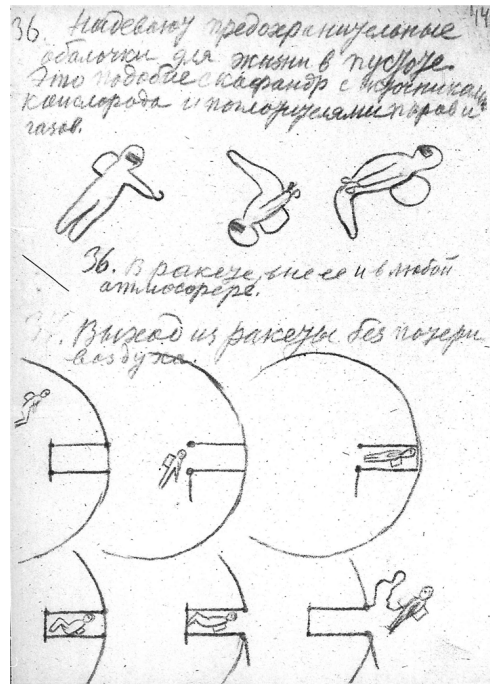 44
36. Надеваю предохранительные
оболочки для жизни в пустоте.
Это подобие скафандр с источниками
кислорода и поглотителями паров и
газов.
36. В ракете, вне ее и в любой
атмосфере.
37. Выход из ракеты без потери
воздуха.